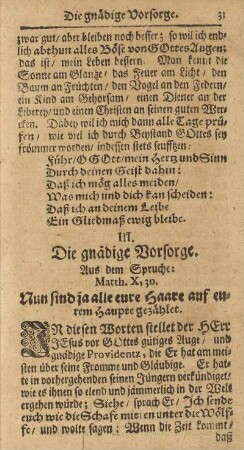 Die gnädige Vorsorge. 31
zwar gut/ aber bleiben noch besser; so wil ich end-
lich abthun alles Böse von GOttes Augen;
das ist/ mein Leben bessern. Man kennt die
Sonne am Glantze/ das Feuer am Licht/ den
Baum an Früchten/ den Vogel an den Federn/
ein Kind am Gehorsam/ einen Diener an der
Liberey/ und einen Christen an seinen guten Wer-
cken. Dabey wil ich mich dann alle Tage prü-
fen/ wie viel ich durch Beystand GOttes sey
frömmer worden/ indessen stets seufftzen:
Führ/ O GOtt/ mein Hertz und Sinn
Durch deinen Geist dahin:
Daß ich mög alles meiden/
Was mich und dich kan scheiden:
Daß ich an deinem Leibe
Ein Gliedmaß ewig bleibe.
III.
Die gnädige Vorsorge.
Aus dem Spruche:
Matth. X, 30.
Nun sind ja alle eure Haare auf eu-
rem Haupte gezählet.
IN diesen Worten stellet der HErr
JEsus vor GOttes gütiges Auge/ und
gnädige Providentz/ die Er hat am mei-
sten über seine Fromme und Gläubige. Er hat-
te in vorhergehenden seinen Jüngern verkündiget/
wie es ihnen so elend und jämmerlich in der Welt
ergehen würde; Siehe/ sprach Er/ Ich sende
euch wie die Schafe mitten unter die Wölf-
fe/ und wolte sagen: Wenn die Zeit kommt/
daß